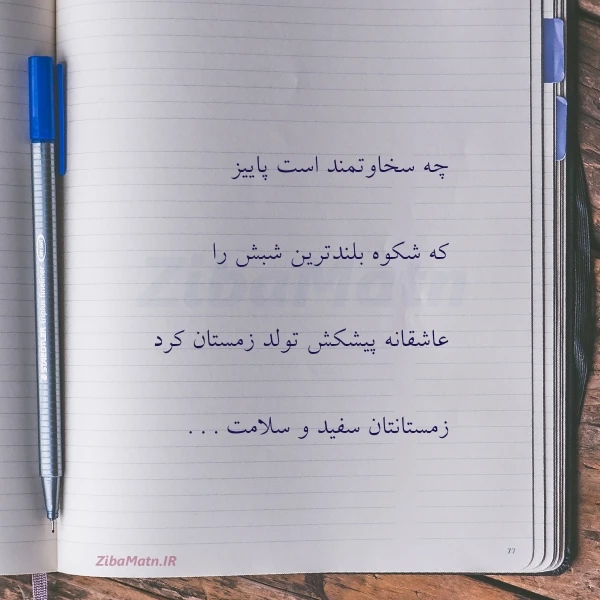 چه سخاوتمند است پاییز
که شکوه بلندترین شبش را
عاشقانه پیشکش تولد زمستان کرد
زمستانتان سفید و سلامت ...
ZibaMatn
ZibaMatn.IR